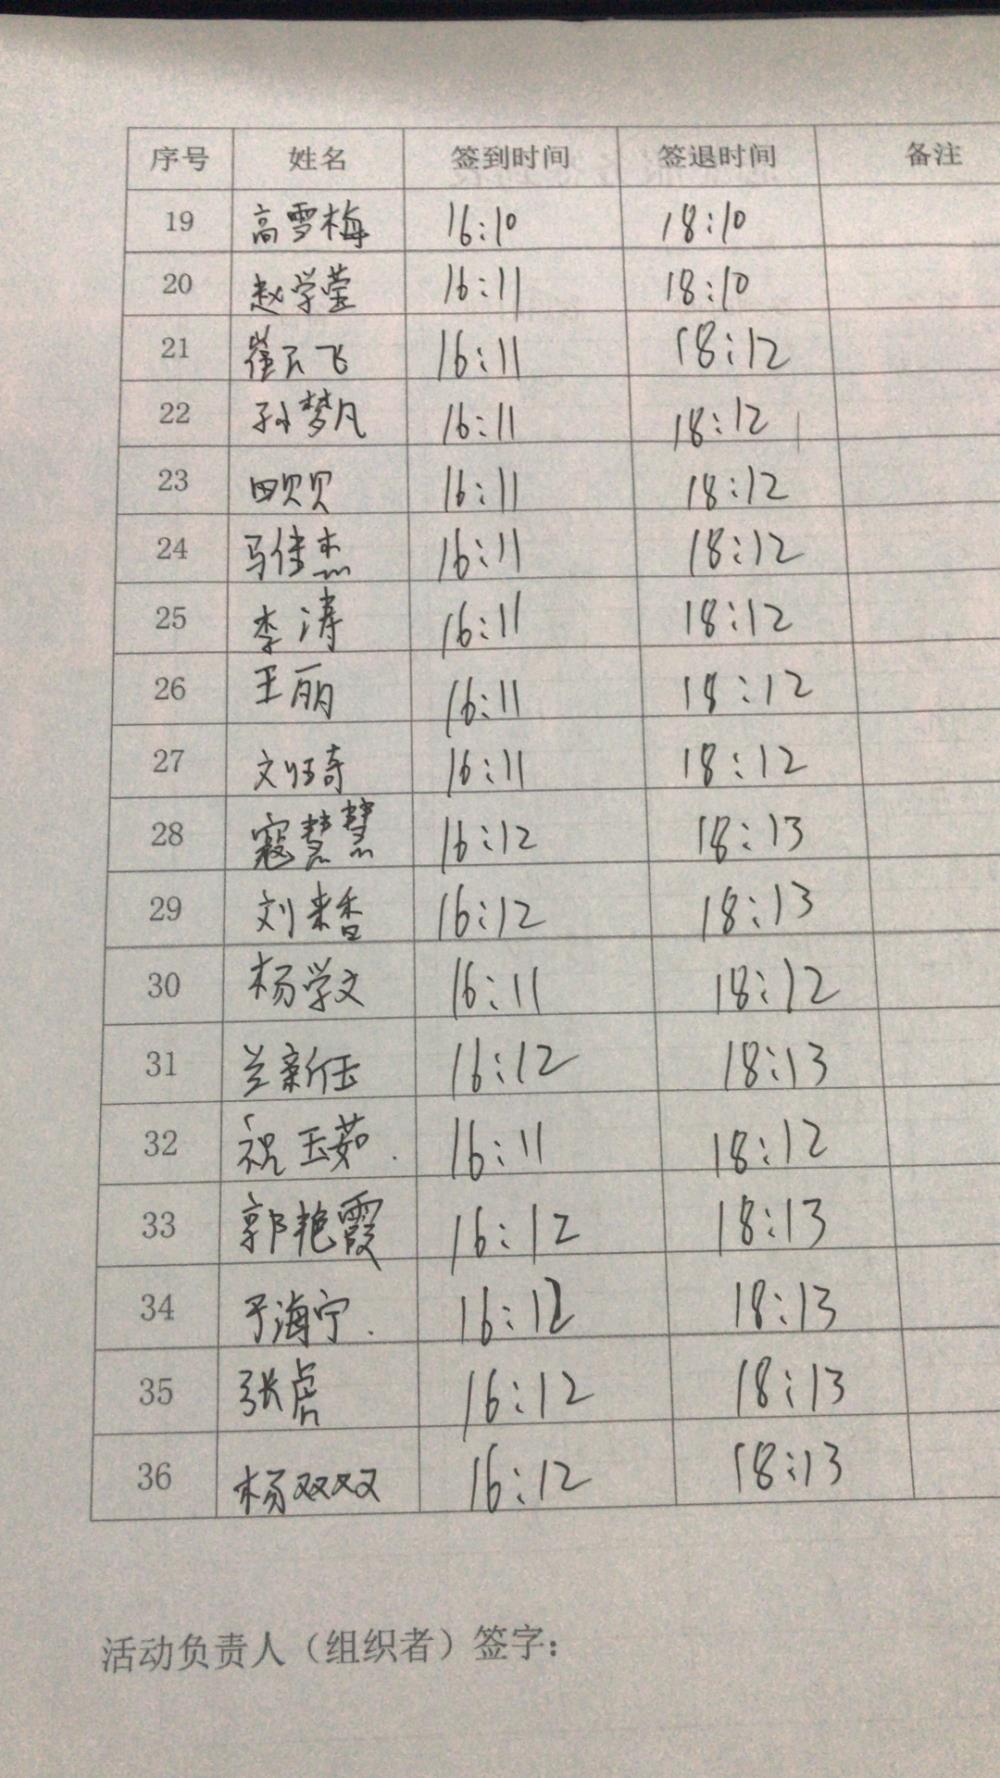 序号 姓名 签到时间 签退时间 备注
19 高雪梅 16:10 18:10
20 赵学莹 16:11 18:10
21 崔云飞 16:11 18:12
22 孙梦凡 16:11 18:12
23 田贝贝 16:11 18:12
24 马佳杰 16:11 18:12
25 李涛 16:11 18:12
26 王丽 16:11 18:12
27 16:11 18:12
28 寇慧慧 16:12 18:13
29 刘来香 16:12 18:13
30 杨学文 16:11 18:12
31 兰新任 16:12 18:13
32 祝玉茹. 16:11 18:12
33 郭艳霞 16:12 18:13
34 于海宁. 16:12 18:13
35 张虎 16:12 18:13
36 杨双双 16:12 18:13
活动负责人（组织者）签字：